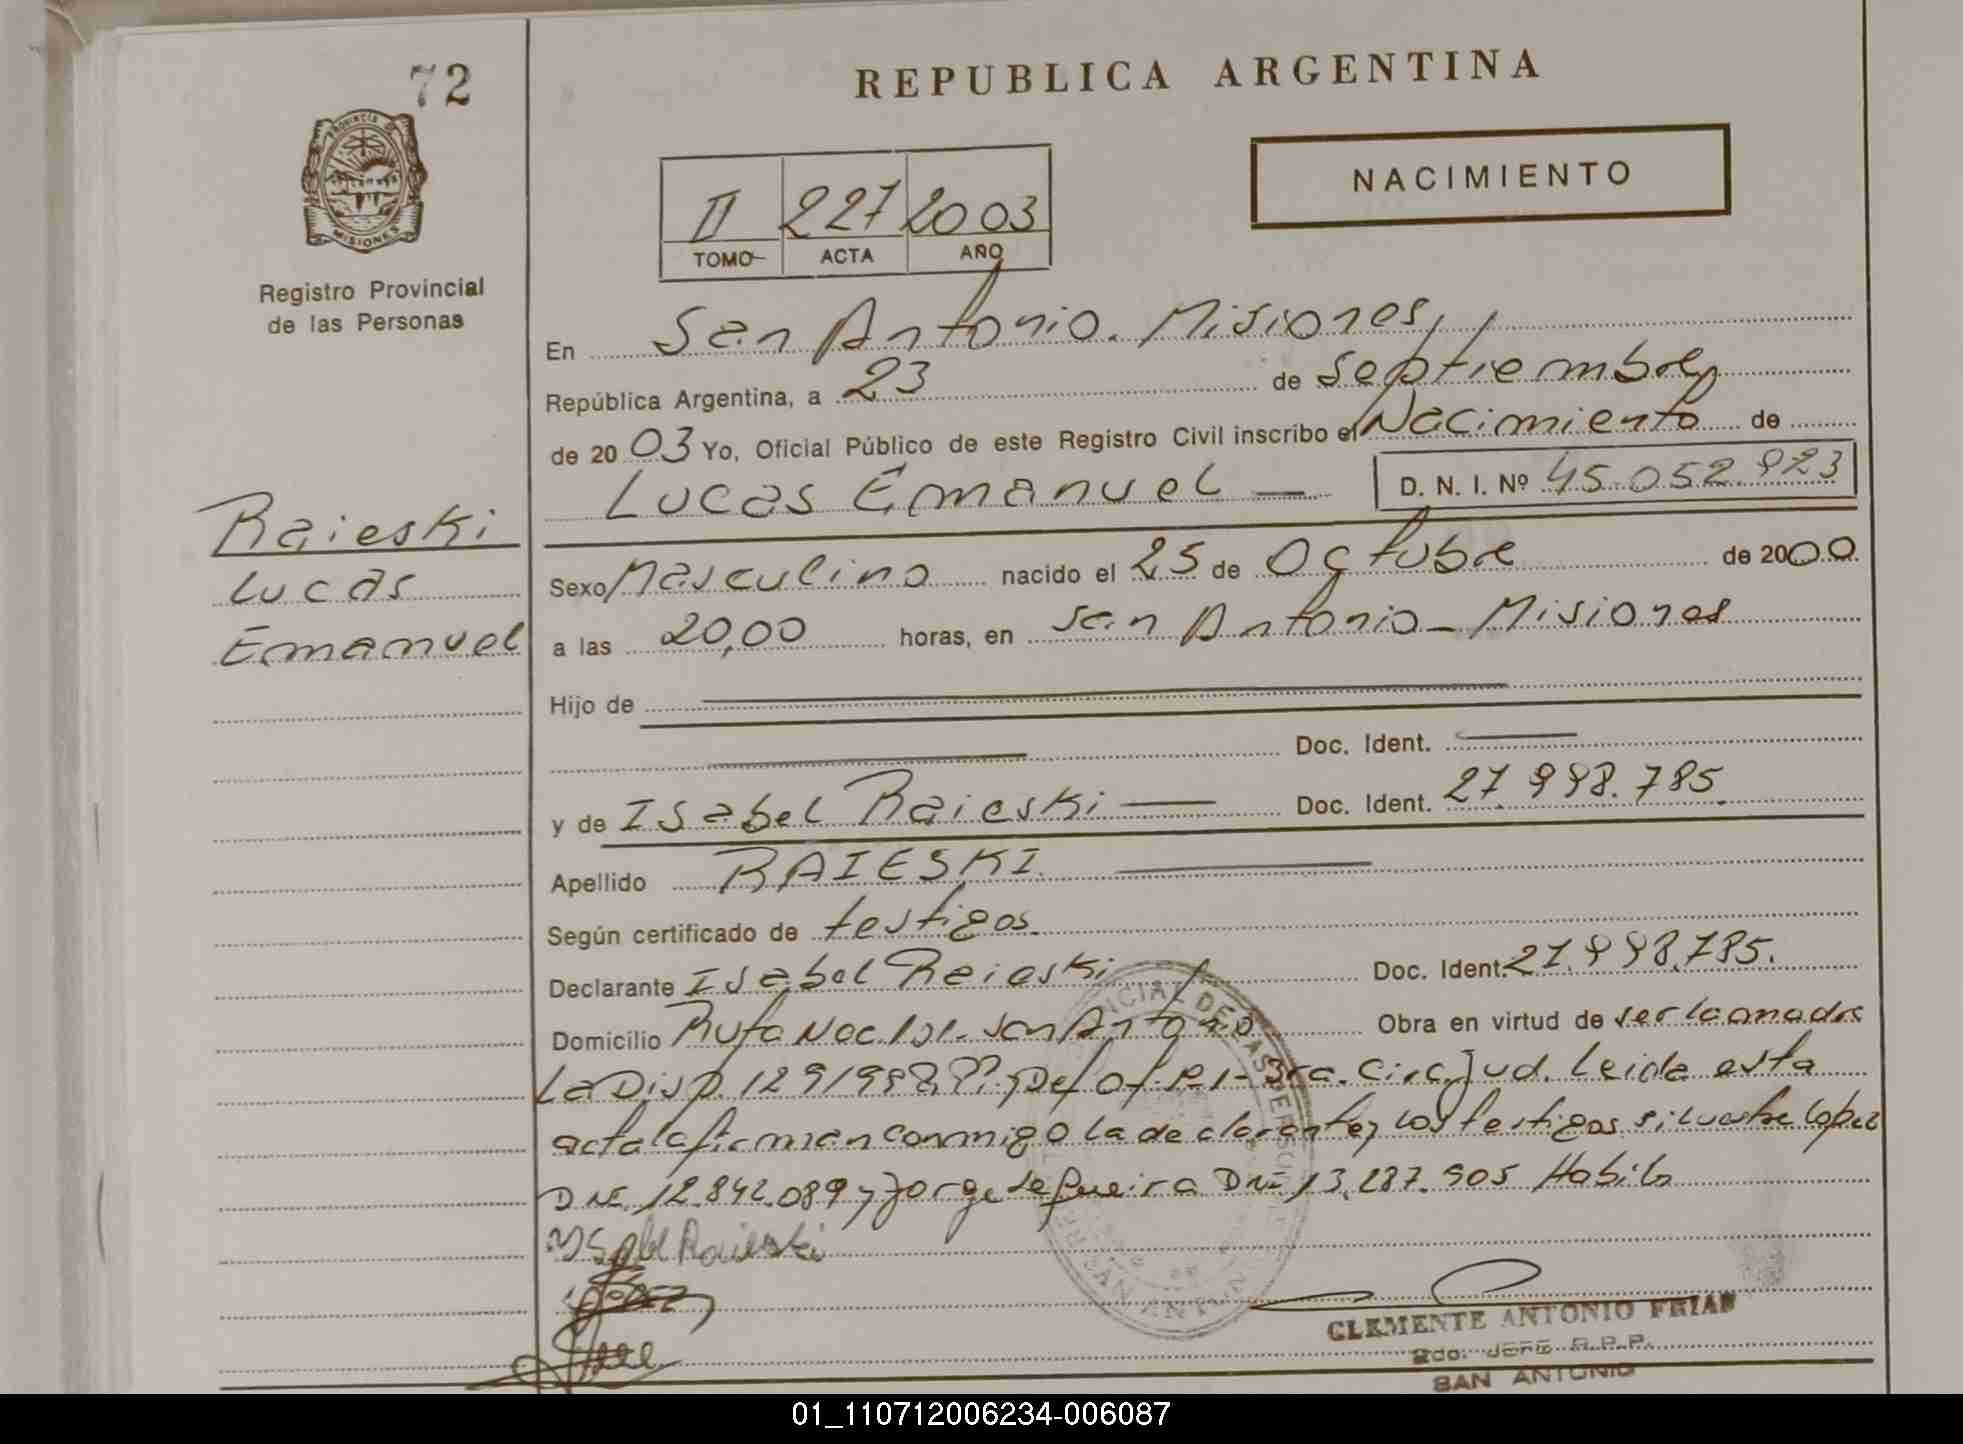 72
REPUBLICA ARGENTINA
PROVINCIA DE
MISIONES
Registro Provincial
de las Personas
NACIMIENTO
II 227 2003
TOMO ACTA AÑO
En San Antonio. Misiones,
República Argentina, a 23 de Septiembre
de 2003 Yo, Oficial Público de este Registro Civil inscribo el Nacimiento de
Lucas Emanuel — D. N. I. Nº 45.052.923
Raieski
Lucas
Emanuel
Sexo Masculino nacido el 25 de Octubre de 2000
a las 20,00 horas, en San Antonio - Misiones
Hijo de
Doc. Ident.
y de Isabel Raieski — Doc. Ident. 27.998.785.
Apellido RAIESKI.
Según certificado de testigos.
Declarante Isabel Raieski Doc. Ident. 27.998.785.
Domicilio Ruta Nac. 101 - San Antonio Obra en virtud de ser la madre
La Disp. 3ra. Circ. Jud. Leida esta
acta la firman conmigo la declarante y los testigos Silvestre Lopez
DNI 12.842.089 y Jorge DNI 13.287.905 Habil
Ysabel Raieski
Lopez
CLEMENTE ANTONIO FRIAS
2do. JEFE R.P.P.
SAN ANTONIO
01_110712006234-006087